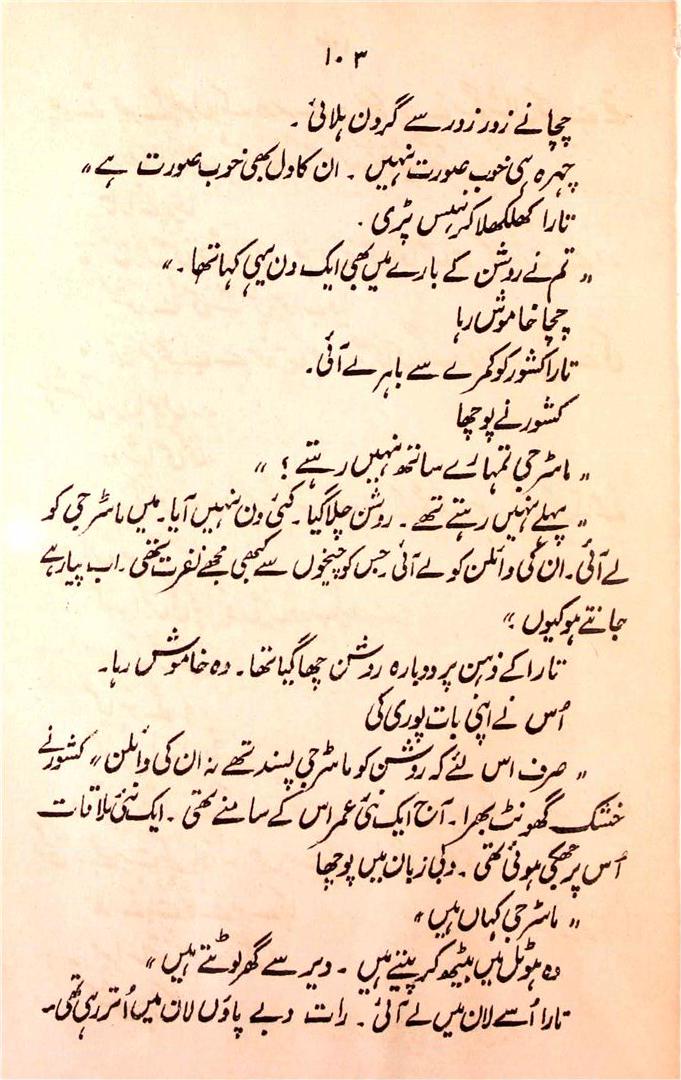 ۱۰۳
چچا نے زور زور سے گردن ہلائی ۔
چہرہ ہی خوب صورت نہیں ۔ ان کا دل بھی خوب صورت ہے "
تارا کھلکھلا کر ہنس پڑی ۔
" تم نے روشن کے بارے میں بھی ایک دن یہی کہا تھا ۔ "
چچا خاموش رہا
تارا کشور کو کمرے سے باہر لے آئی ۔
کشور نے پوچھا
" ماسٹر جی تمہارے ساتھ نہیں رہتے ؟ "
" پہلے نہیں رہتے تھے ۔ روشن چلا گیا ۔ کئی دن نہیں آیا ۔ میں ماسٹر جی کو
لے آئی ۔ ان کی وائلن کو لے آئی ۔ جس کو چیخوں سے کبھی مجھے نفرت تھی ۔ اب پیار ہے
جانتے ہو کیوں ؟ "
تارا کے ذہن پر دوبارہ روشن چھا گیا تھا ۔ وہ خاموش رہا ۔
اُس نے اپنی بات پوری کی
" صرف اس لئے کہ روشن کو ماسٹر جی پسند تھے نہ ان کی وائلن " کشور نے
خشک گھونٹ بھرا ۔ آج ایک نئی عمر اس کے سامنے تھی ۔ ایک نئی ملاقات
اُس پر جھکی ہوئی تھی ۔ دبی زبان میں پوچھا
" ماسٹر جی کہاں ہیں "
وہ ہوٹل میں بیٹھ کر پیتے ہیں ۔ دیر سے گھر لوٹتے ہیں "
تارا اُسے لان میں لے آئی ۔ رات دبے پاؤں لان میں اُتر رہی تھی ۔